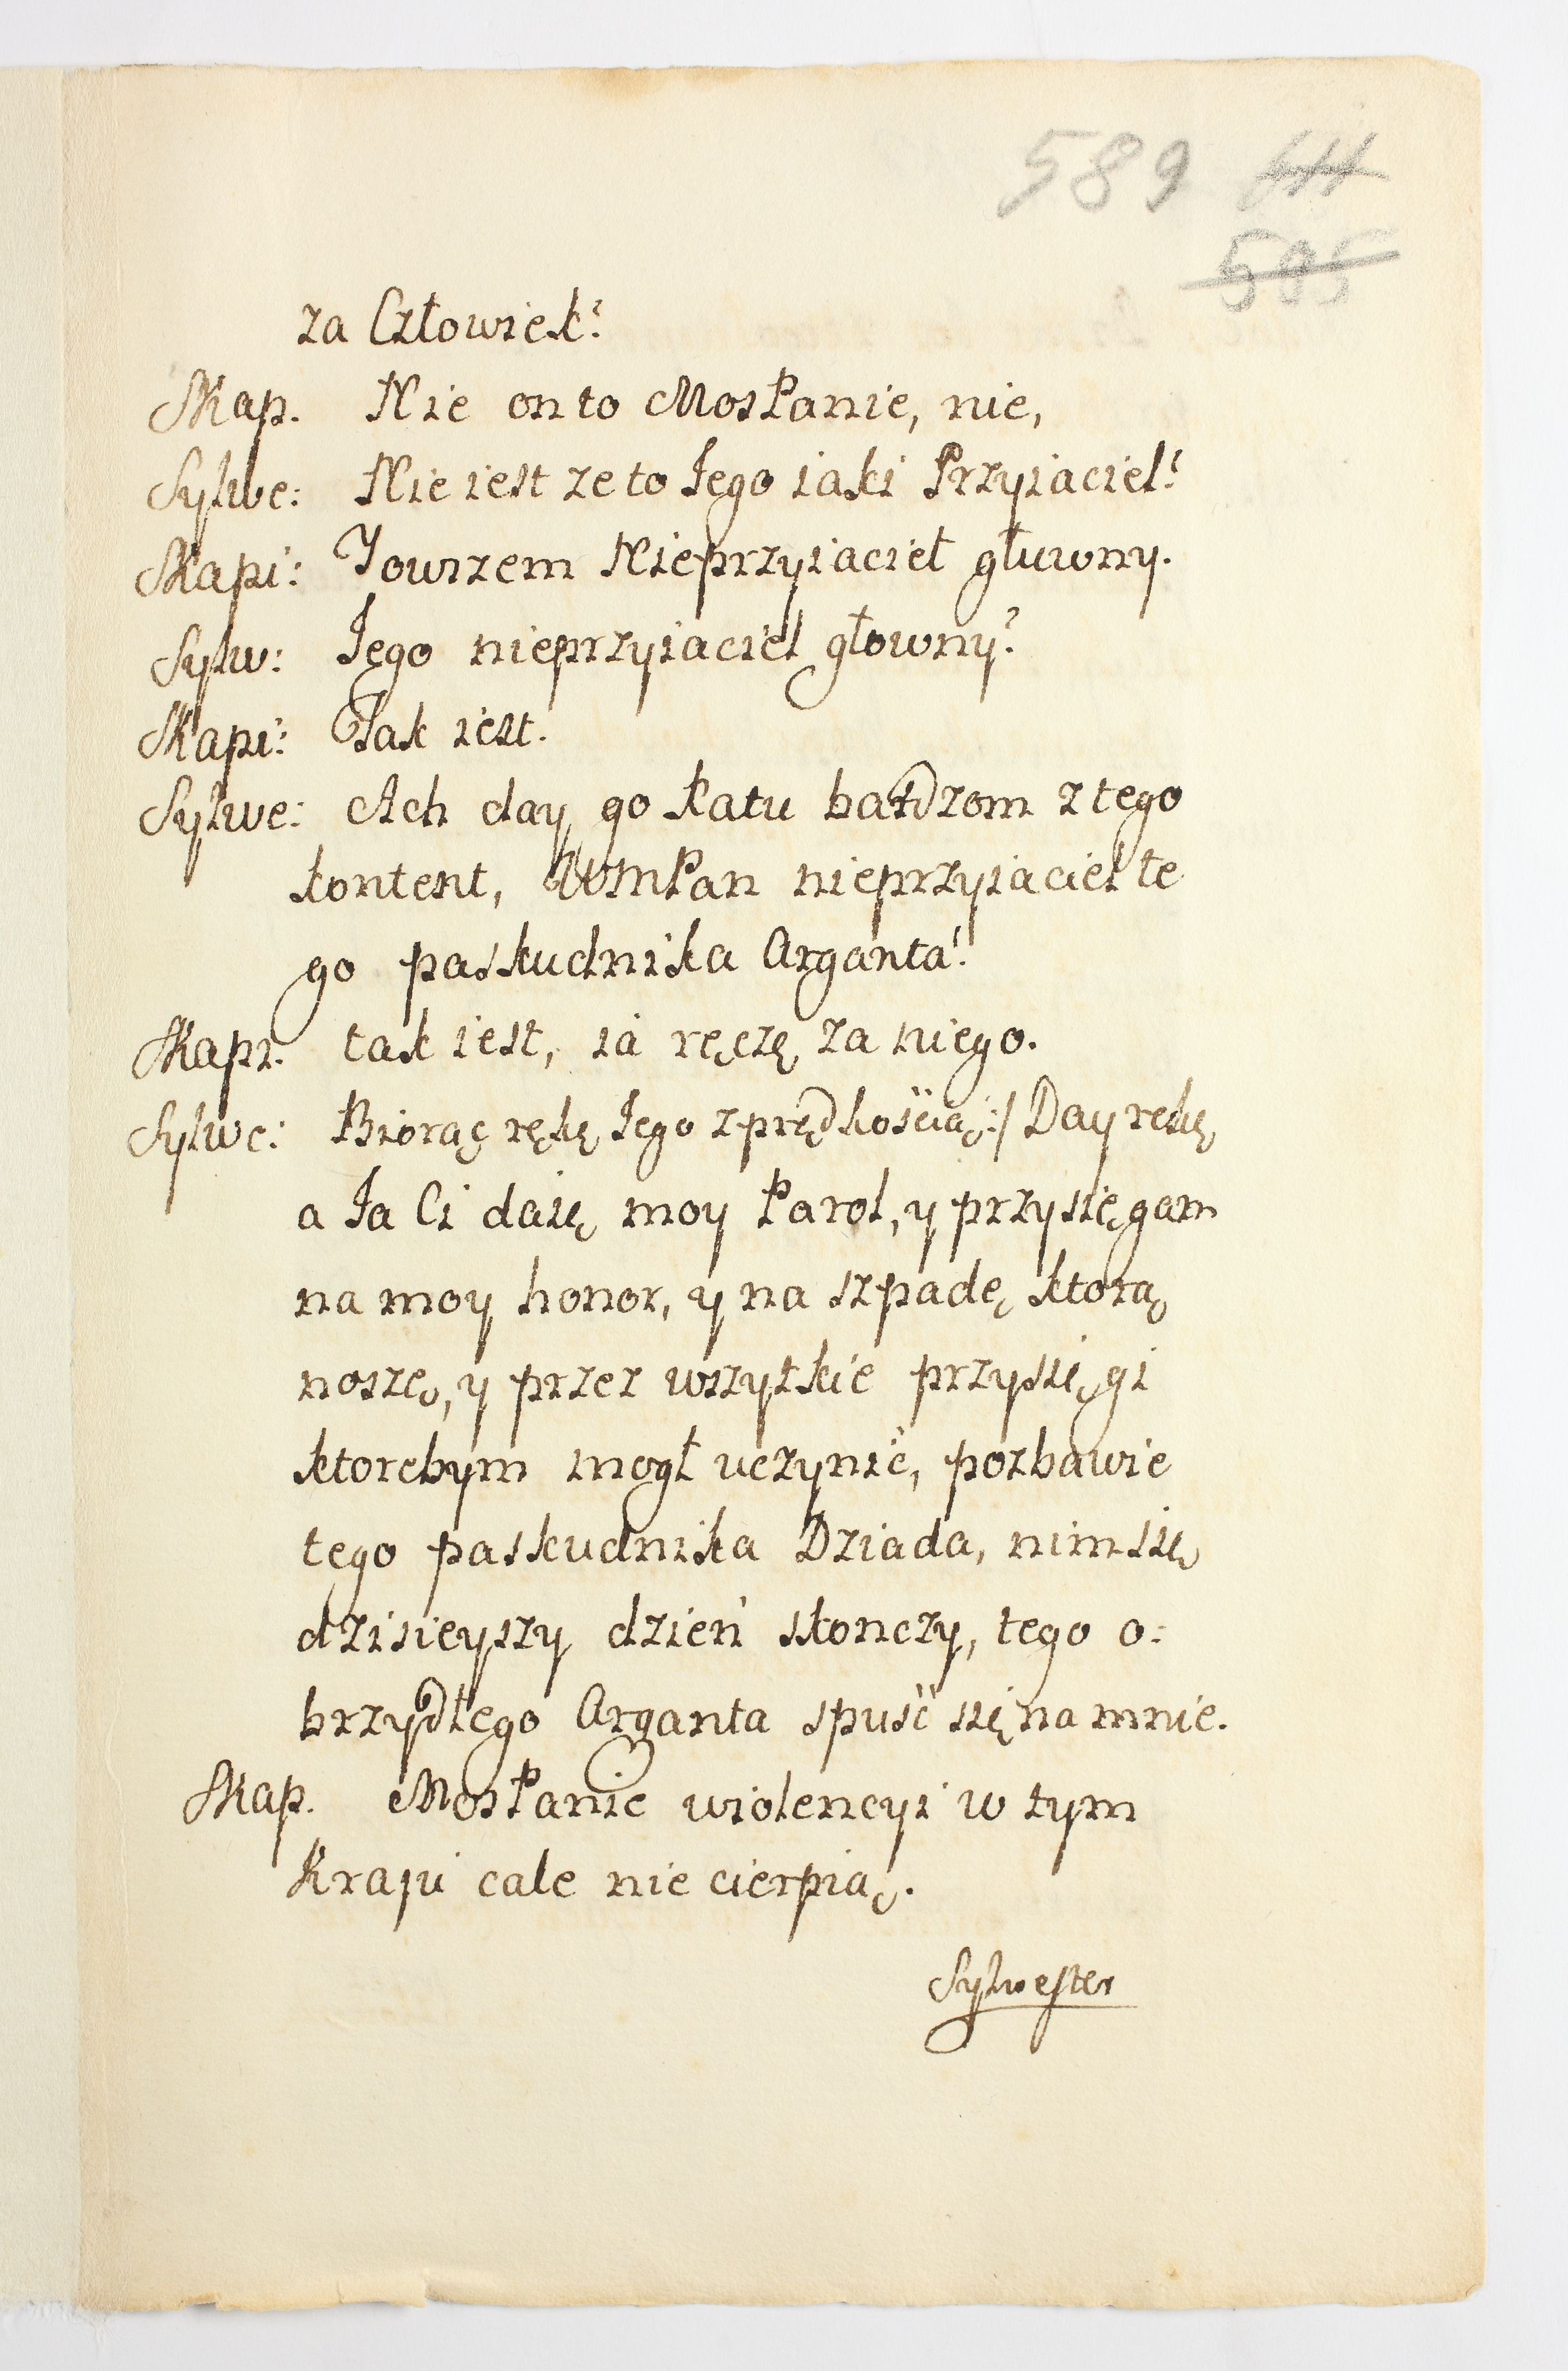 589
595
za Człowiek?
Skap. Nie on to MosPanie, nie,
Sylwe: Nie iest ze to Jego iaki Przyiaciel?
Skapi: Jowszem Nieprzyiaciel głuwny.
Sylw: Jego nieprzyiaciel głowny?
Skapi: Tak iest.
Sylwe: Ach day go katu bardzom z tego
kontent, WMPan nieprzyiaciel te
go paskudnika Arganta?
Skapi. tak iest, ia ręczę za niego.
Sylwe: Biorąc rękę Jego z prędkością:/ Day rekę
a Ja Ci daię moy Parol, y przysięgam
na moy honor, y na szpadę ktorą
noszę, y przez wszytkie przysięgi
ktorebym mogł uczynić, pozbawie
tego paskudnika Dziada, nim się
dzisieyszy dzień skonczy, tego o:
brzydłego Arganta spuść się na mnie.
Skap. MosPanie wiolencyi w tym
Kraju cale nie cierpią.
Sylwester